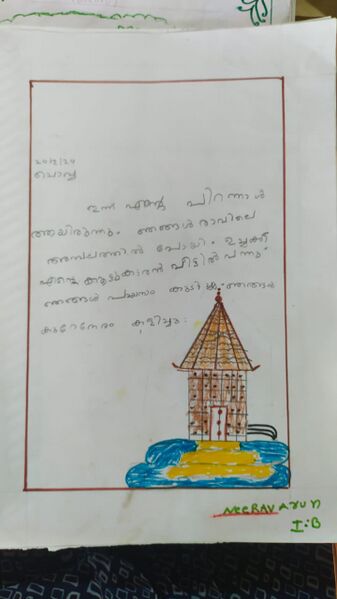 20/2/20
ചൊവ്വ
ഇന്ന് എന്റെ പിറന്നാൾ
ആയിരുന്നു. ഞങ്ങൾ രാവിലെ
അമ്പലത്തിൽ പോയി. ഉച്ചക്ക്
എന്റെ കൂട്ടുകാരൻ വീട്ടിൽ വന്നു.
ഞങ്ങൾ പായസം കുടിച്ചു. ഞങ്ങൾ
കുറേനേരം കളിച്ചു.
NEERAV ARUN
I:B